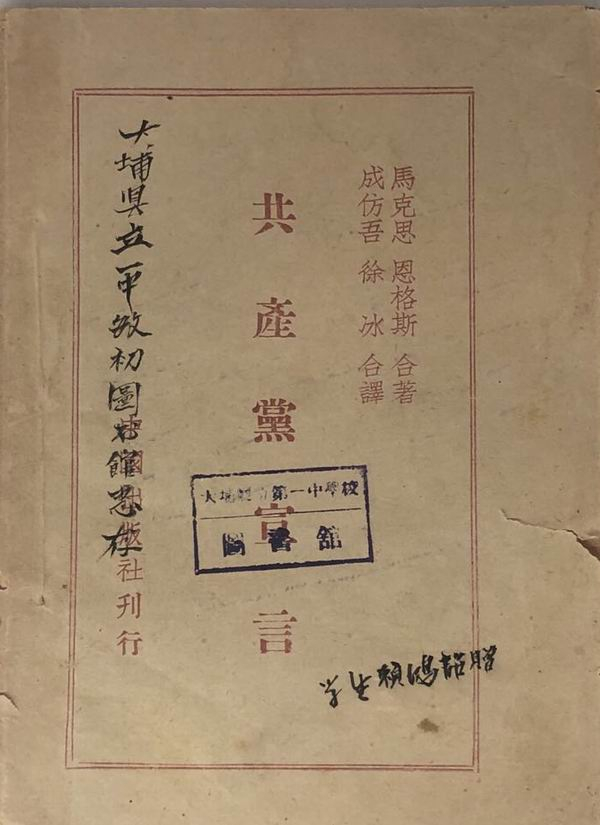 馬克思 恩格斯 合著
成仿吾 徐冰 合譯
共產黨宣言
大埔縣立第一中學校
圖書館
社刊行
大埔県立一中敬初圖书館惠存
学生賴鴻韶贈